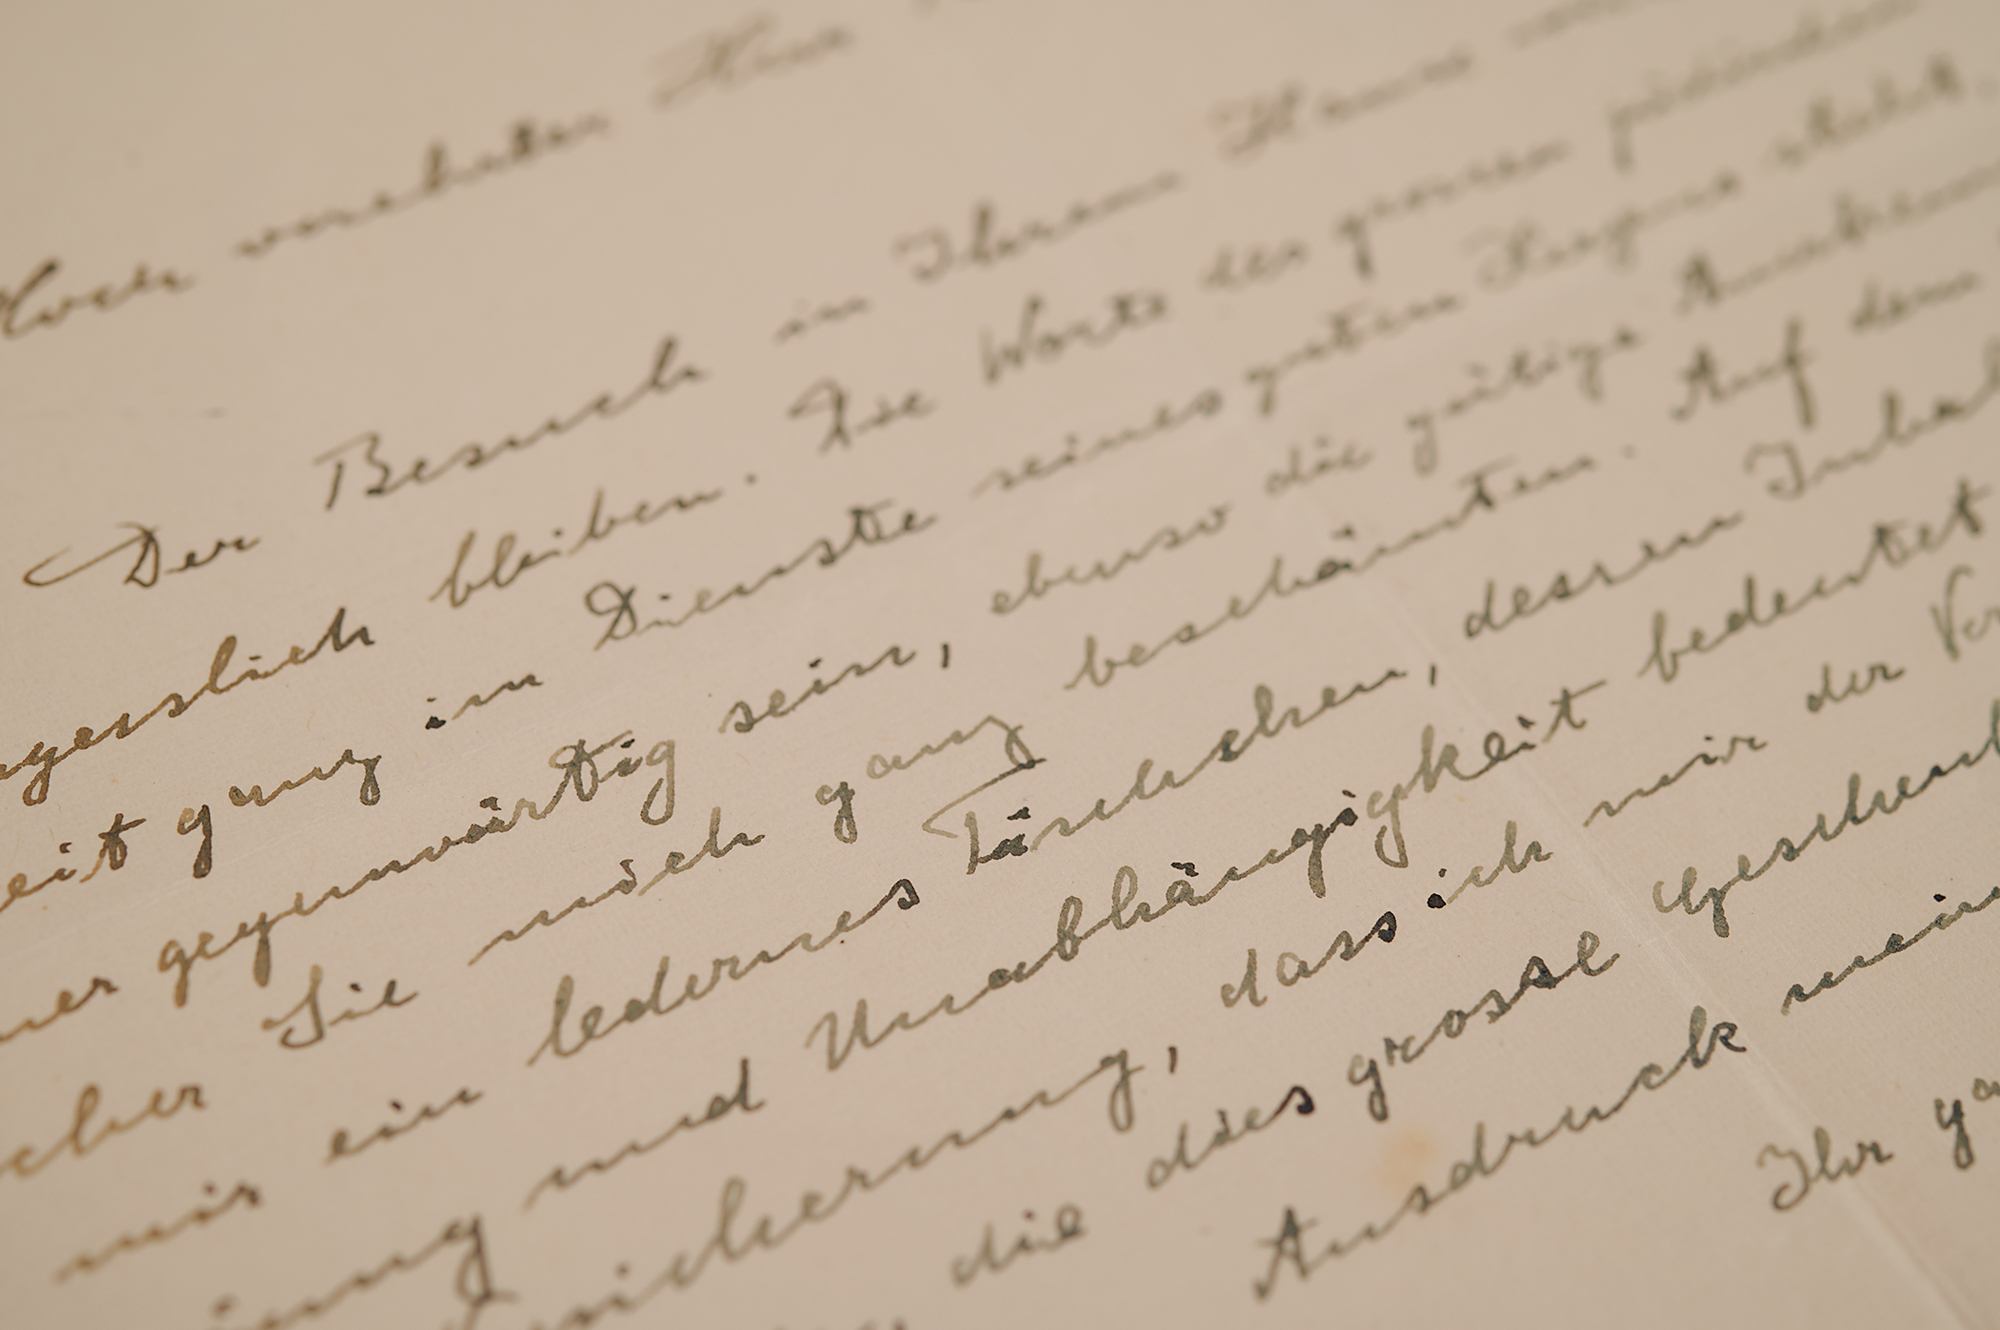 verehrter Herr
Der Besuch in Ihrem Hause
gesslich bleiben. Die Worte des grossen jüdischen
eit ganz im Dienste seines guten Volkes
ner gegenwärtig sein, ebenso die gütige
cher Sie mich ganz beschämten. Auf dem
mir ein ledernes Täschchen, dessen Inhal
ung und Unabhängigkeit bedeutet
sicherung, dass ich mir der Ver
die dies grosse Geschenk
Ausdruck mein
Ihr ga